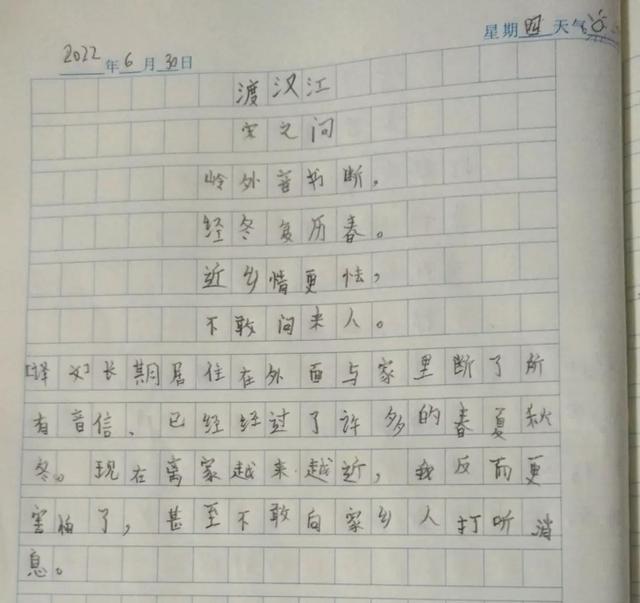 星期四天气
2022年6月30日
渡汉江
宋之问
岭外音书断，
经冬复历春。
近乡情更怯，
不敢问来人。
[译文]长期居住在外面与家里断了所
有音信、已经经过了许多的春夏秋
冬。现在离家越来越近，我反而更
害怕了，甚至不敢向家乡人打听消
息。